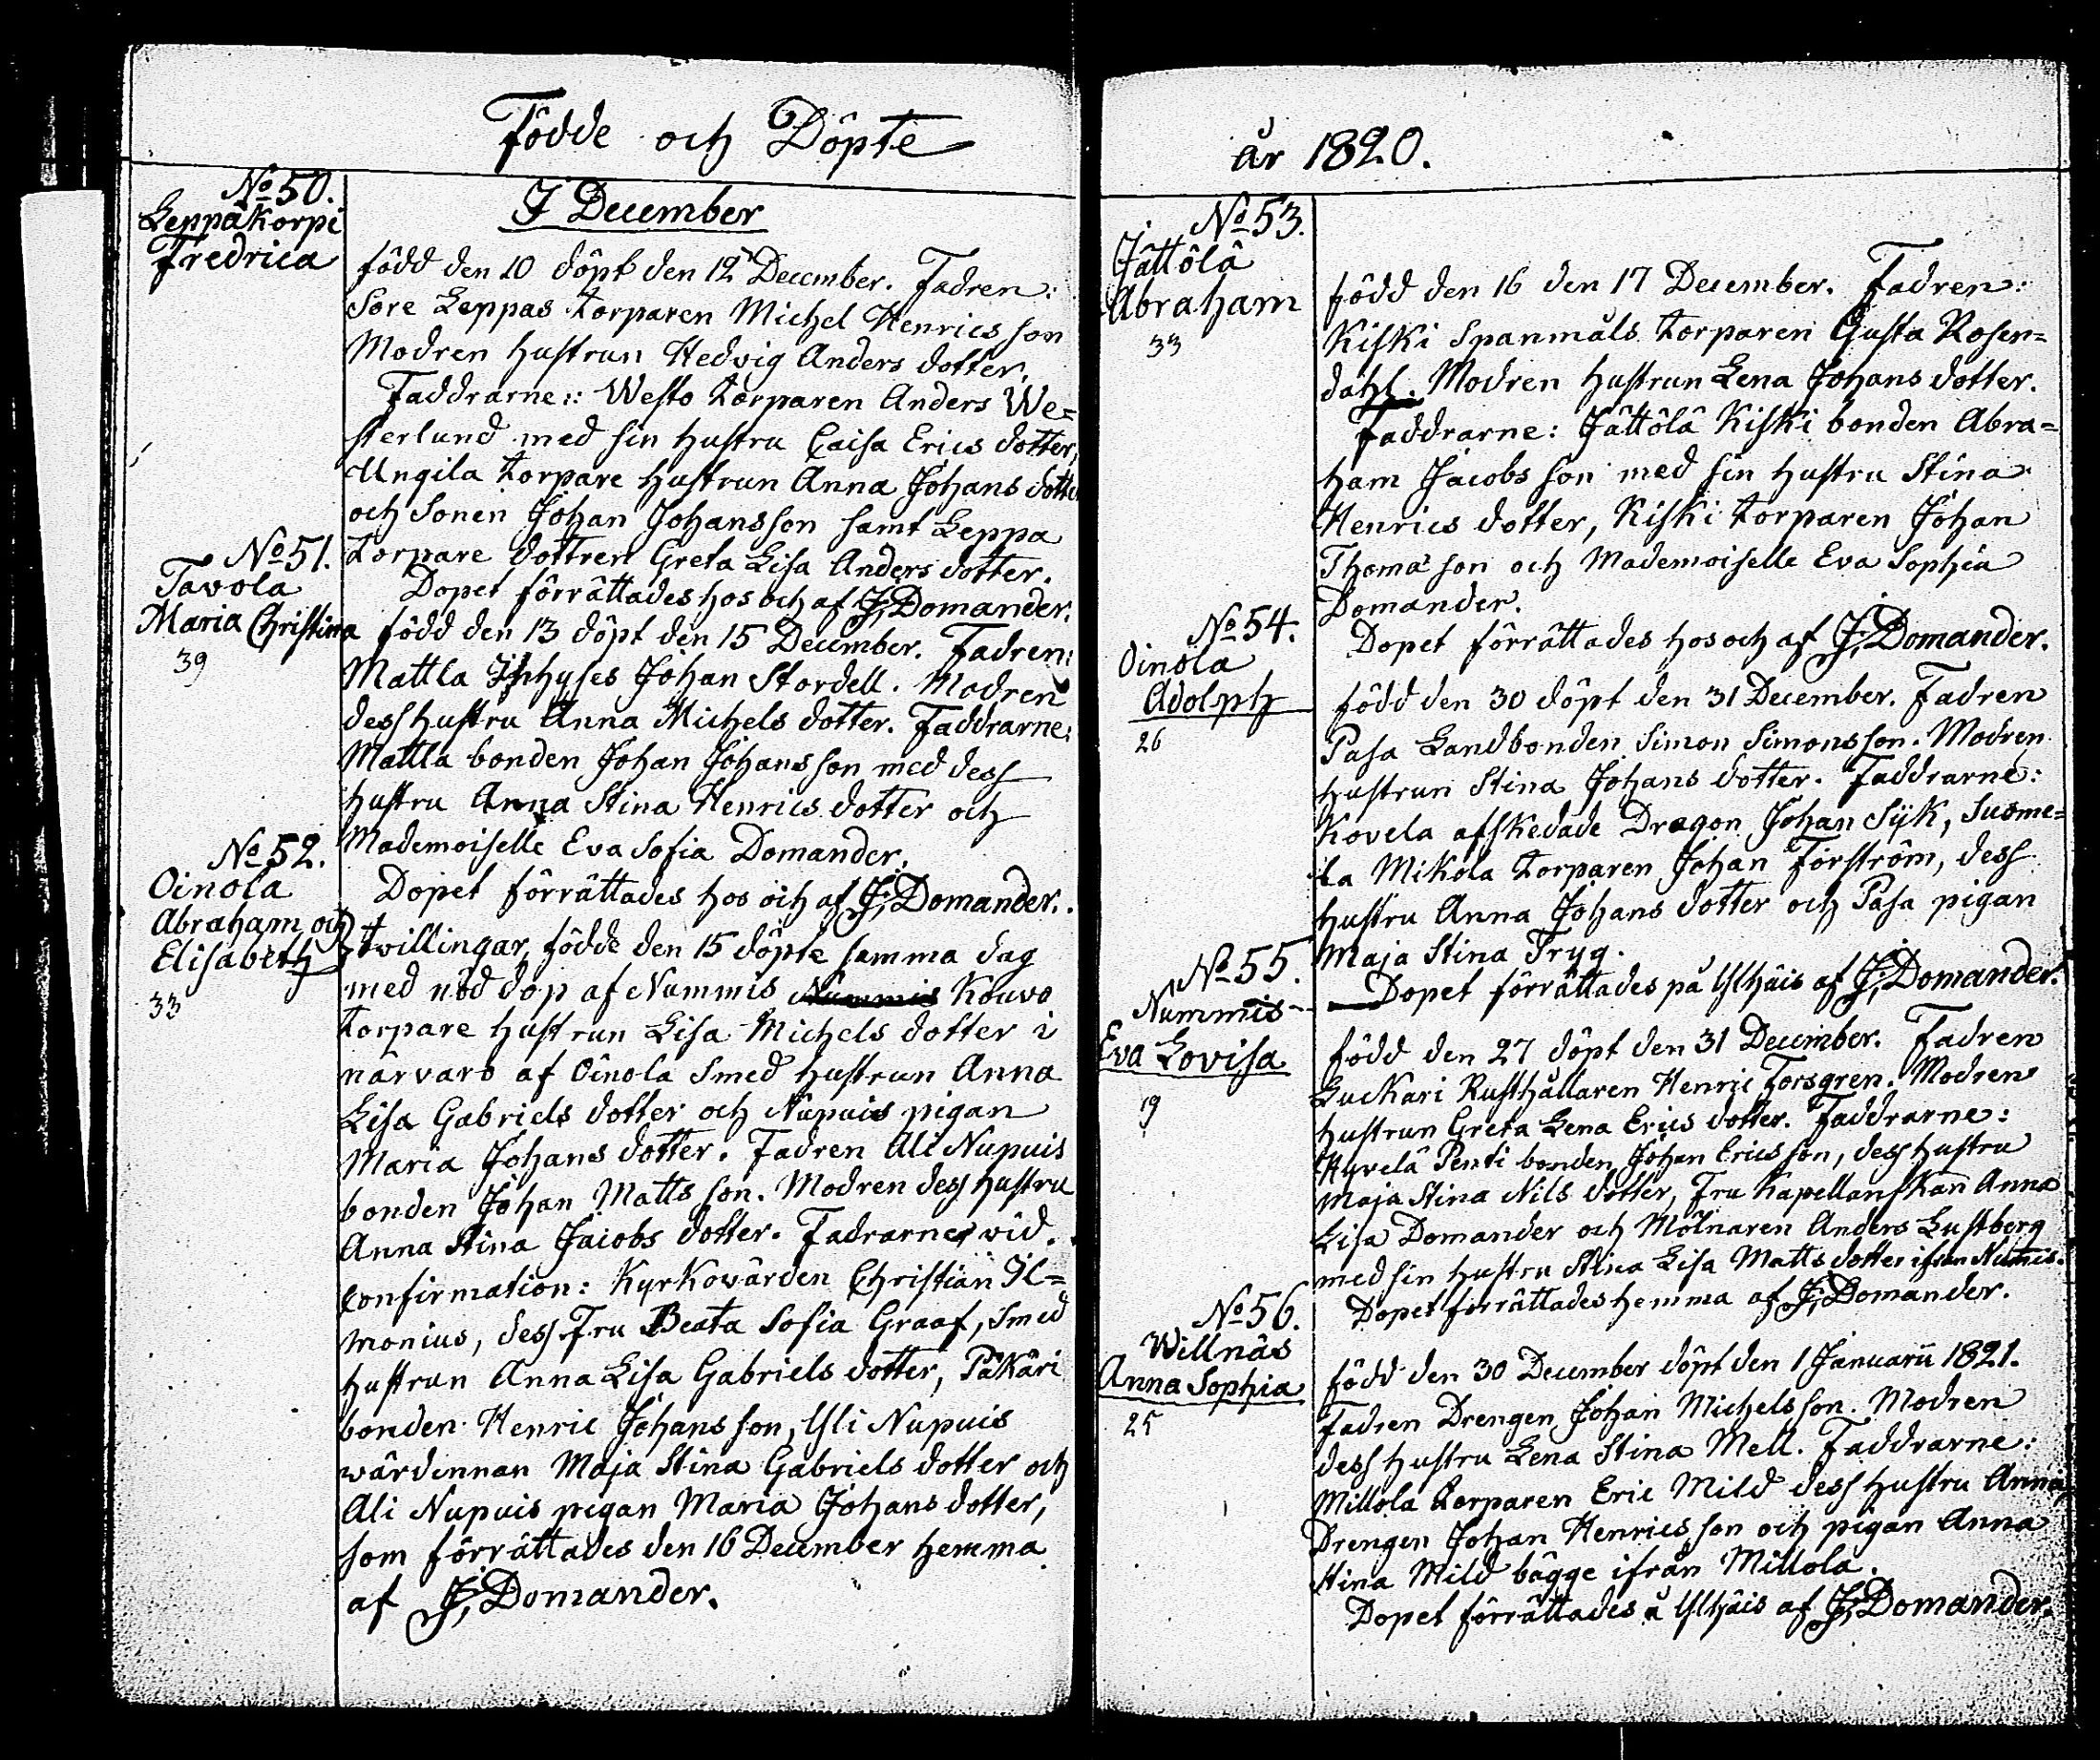 Födde och Döpte
No 50.
Leppäkorpi
Fredrica
I December
född den 10 döpt den 12 December. Fadren:
Sore Leppas torparen Michel Henrics son
Modren hustrun Hedvig Anders dotter.
Faddrarne: Westo torparen Anders We=
sterlund med sin hustru Caisa Erics dotter,
Ungila torpare hustrun Anna Johans dotter
och Sonen Johan Johansson samt Leppa
torpare dottren Greta Lisa Anders dotter.
Dopet förrättades hos och af J; Domander.
No 51.
Tavola
Maria Christina
39
född den 13 döpt den 15 December. Fadren:
Mattla Inhyses Johan Stordell. Modren
dess hustru Anna Michels dotter. Faddrarne:
Mattla bonden Johan Johans son med dess
hustru Anna Stina Henrics dotter och
Mademoiselle Eva Sofia Domander.
Dopet förrättades hos och af J; Domander.
No 52.
Oinola
Abraham och
Elisabeth
33
twillingar, födde den 15 döpte samma dag
med nöd dop af Nummis Kouvo
torpare hustrun Lisa Michels dotter i
närvaro af Oinola Smed hustrun Anna
Lisa Gabriels dotter och Nupuis pigan
Maria Johans dotter. Fadren Ali Nupuis
bonden Johan Matts son. Modren dess hustru
Anna Stina Jacobs dotter. Fadrarne wid
Confirmation: Kyrkowärden Christian Il=
monius, dess Fru Beata Sofia Graaf, Smed
hustrun Anna Lisa Gabriels dotter, Päkäri
bonden Henric Johans son, Yli Nupuis
wärdinnan Maja Stina Gabriels dotter och
Ali Nupuis pigan Maria Johans dotter,
som förrättades den 16 December hemma
af J; Domander.
år 1820.
No 53.
Jättölä
Abraham
33
född den 16 den 17 December. Fadren:
Kiski Spanmåls torparen Gusta Rosen=
dahl. Modren hustrun Lena Johans dotter.
Faddrarne: Jättölä Kiski bonden Abra=
ham Jacobs son med sin hustru Stina
Henrics dotter, Kiski torparen Johan
Thoma son och Mademoiselle Eva Sophia
Domander.
Dopet förrättades hos och af J; Domander.
No 54.
Oinola
Adolph
26
född den 30 döpt den 31 December. Fadren
Pasa Landbonden Simon Simonsson. Modren
hustrun Stina Johans dotter. Faddrarne:
Kovela afskedade Dragon Johan Syk, Suome=
la Mikola torparen Johan Forström, dess
hustru Anna Johans dotter och Pasa pigan
Maja Stina Tryg.
Dopet förrättades på Ylhäis af J; Domander.
No 55.
Nummis
Eva Lovisa
19
född den 27 döpt den 31 December. Fadren
Luckari Rusthållaren Henric Forsgren. Modren
hustrun Greta Lena Erics dotter. Faddrarne:
Hyvelä Penti bonden Johan Ericsson, dess hustru
Maja Stina Nils dotter, Fru Kapellanskan Anna
Lisa Domander och Mölnaren Anders Lustberg
med sin hustru Stina Lisa Matts dotter ifrån Nummis.
Dopet förrättades hemma af J; Domander.
No 56.
Willnäs
Anna Sophia
25
född den 30 December döpt den 1 Januarii 1821.
Fadren Drengen Johan Michelsson. Modren
dess hustru Lena Stina Mell. Faddrarne:
Millola torparen Eric Mild dess hustru Anna,
Drengen Johan Henrics son och pigan Anna
Stina Mild bägge ifrån Millola.
Dopet förrättades å Ylhäis af J; Domander.